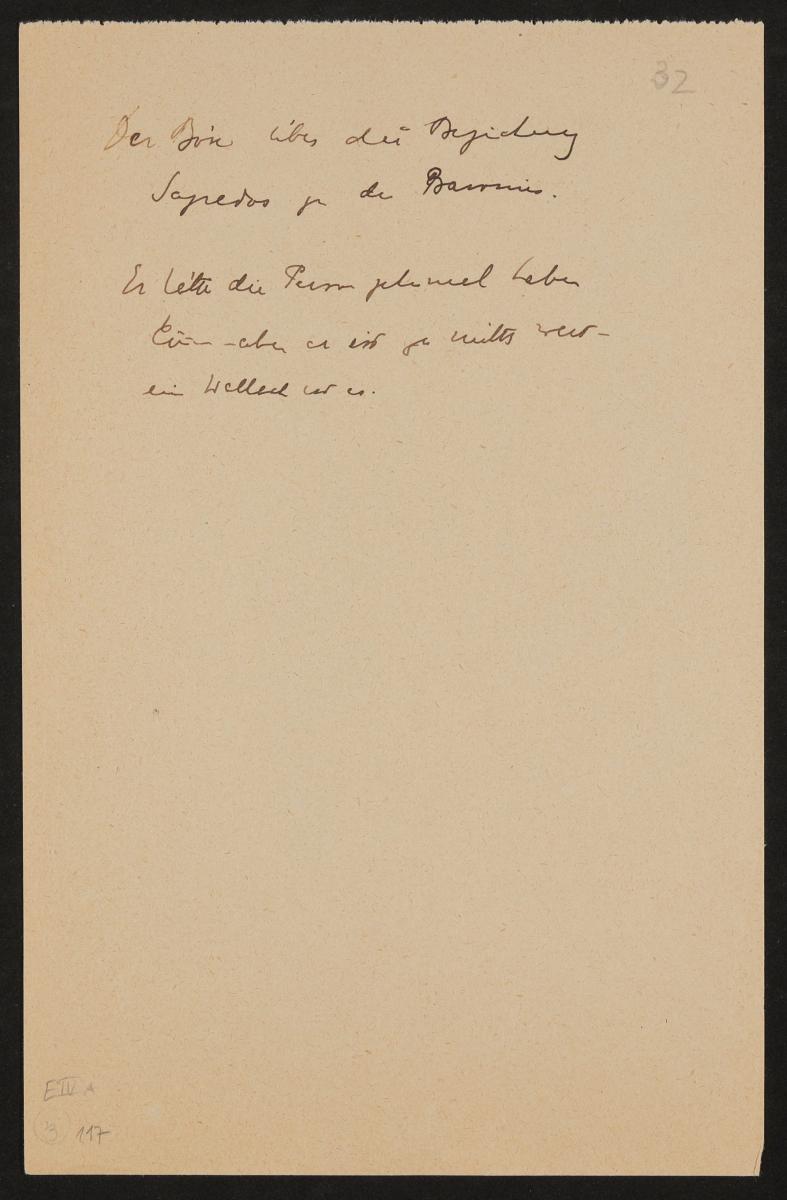 32
Der Böse über die Beziehung
Sagredos zu der Baronin.
Er hätte die Person zehnmal haben
können – aber er ist zu nichts wert –
ein Wallach ist er.
E IV A
3 117